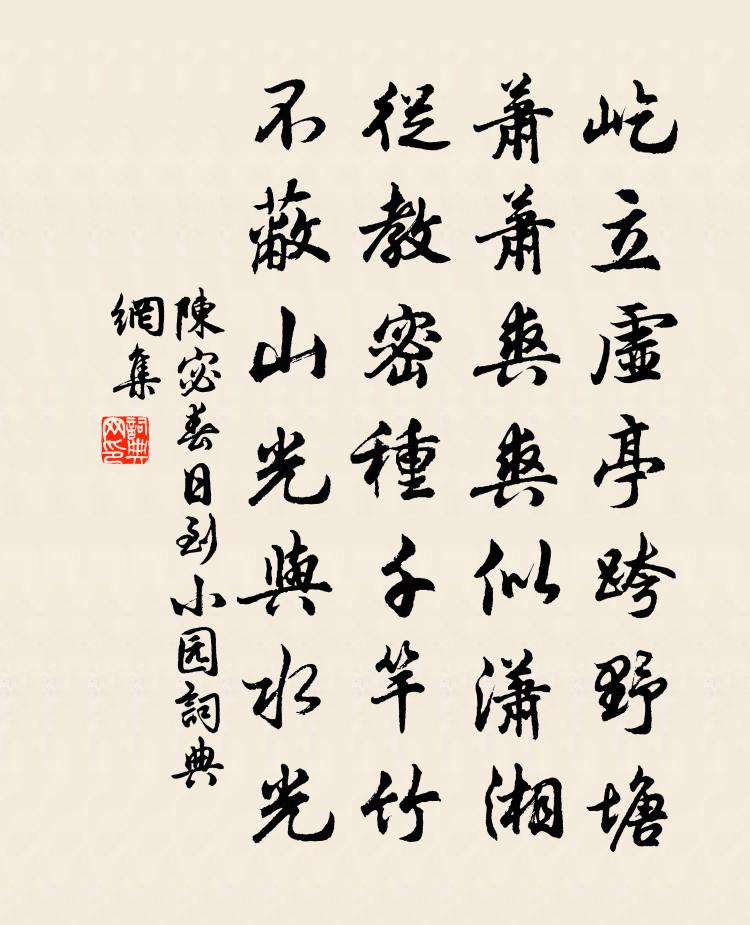 屹立虛亭跨野塘
蕭蕭爽爽似瀟湘
從教密種千竿竹
不蔽山光與水光
陳宓春日到小园詞典
網集
詞典
网印